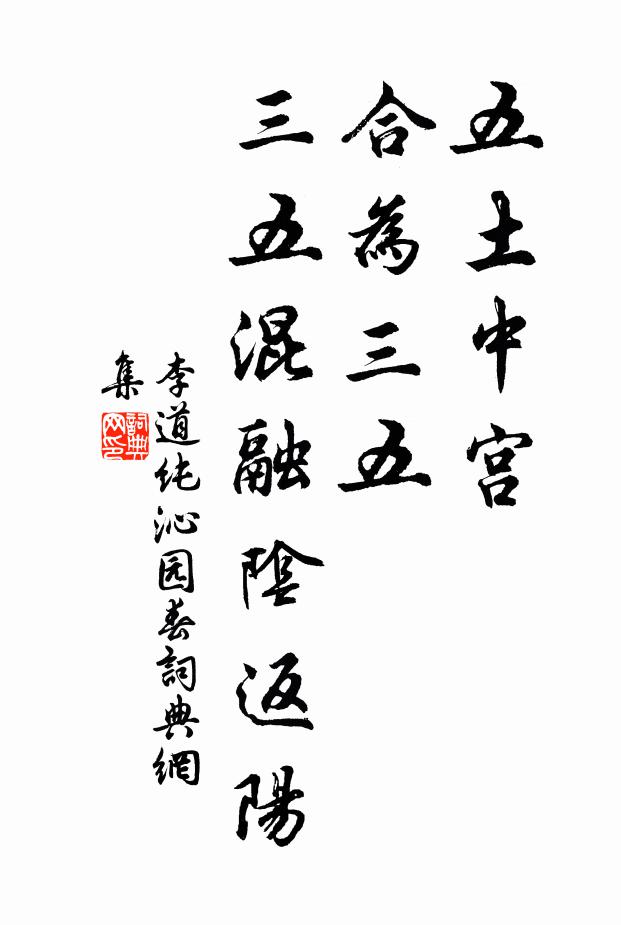 五土中宮
合為三五
三五混融陰返陽
李道纯沁园春詞典網
集
詞典网印